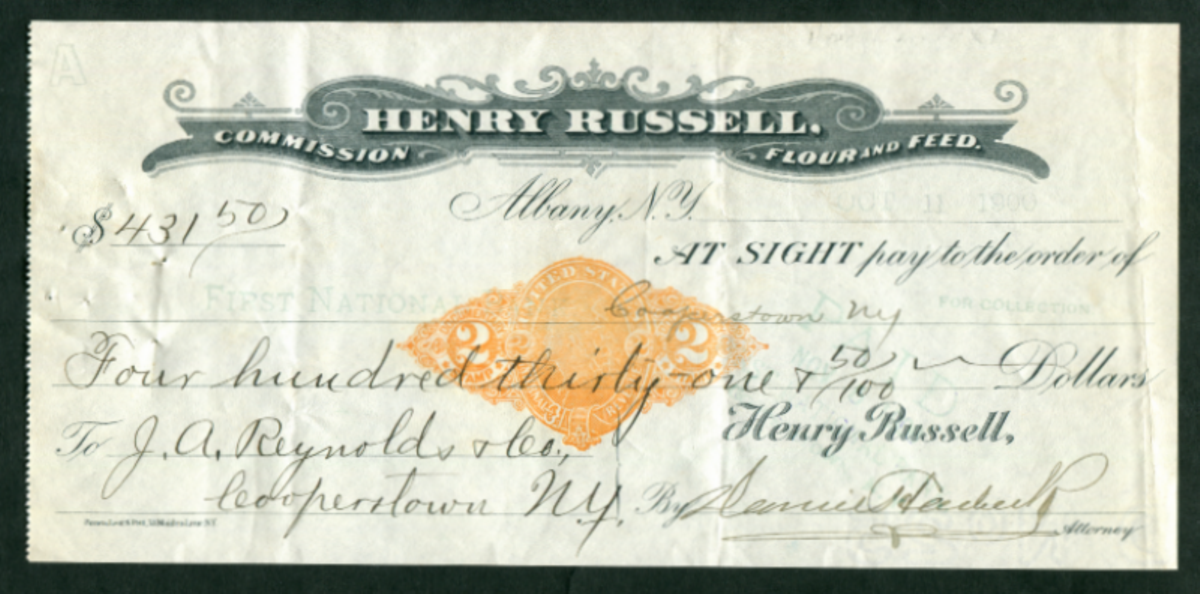 A
HENRY RUSSELL.
COMMISSION
FLOUR AND FEED.
$431 50
Albany, N.Y. OCT 11 1900
AT SIGHT pay to the order of
FIRST NATIONAL
UNITED STA
Cooperstown NY
FOR COLLECTION
2 2
Four hundred thirty-one & 50/100 Dollars
To J. A. Reynolds & Co.,
Henry Russell,
Cooperstown N.Y.
By
Attorney